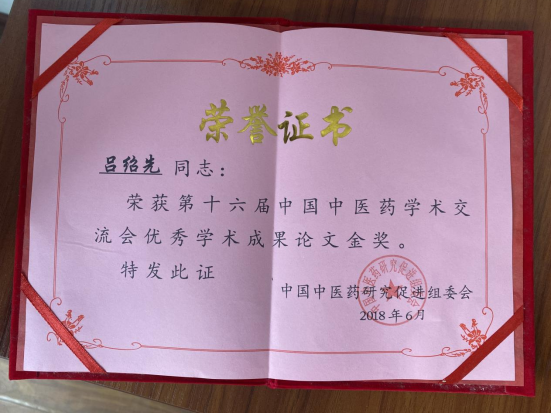 荣誉证书
吕绍先 同志：
荣获第十六届中国中医药学术交
流会优秀学术成果论文金奖。
特发此证
中国中医药研究促进组委会
2018年6月